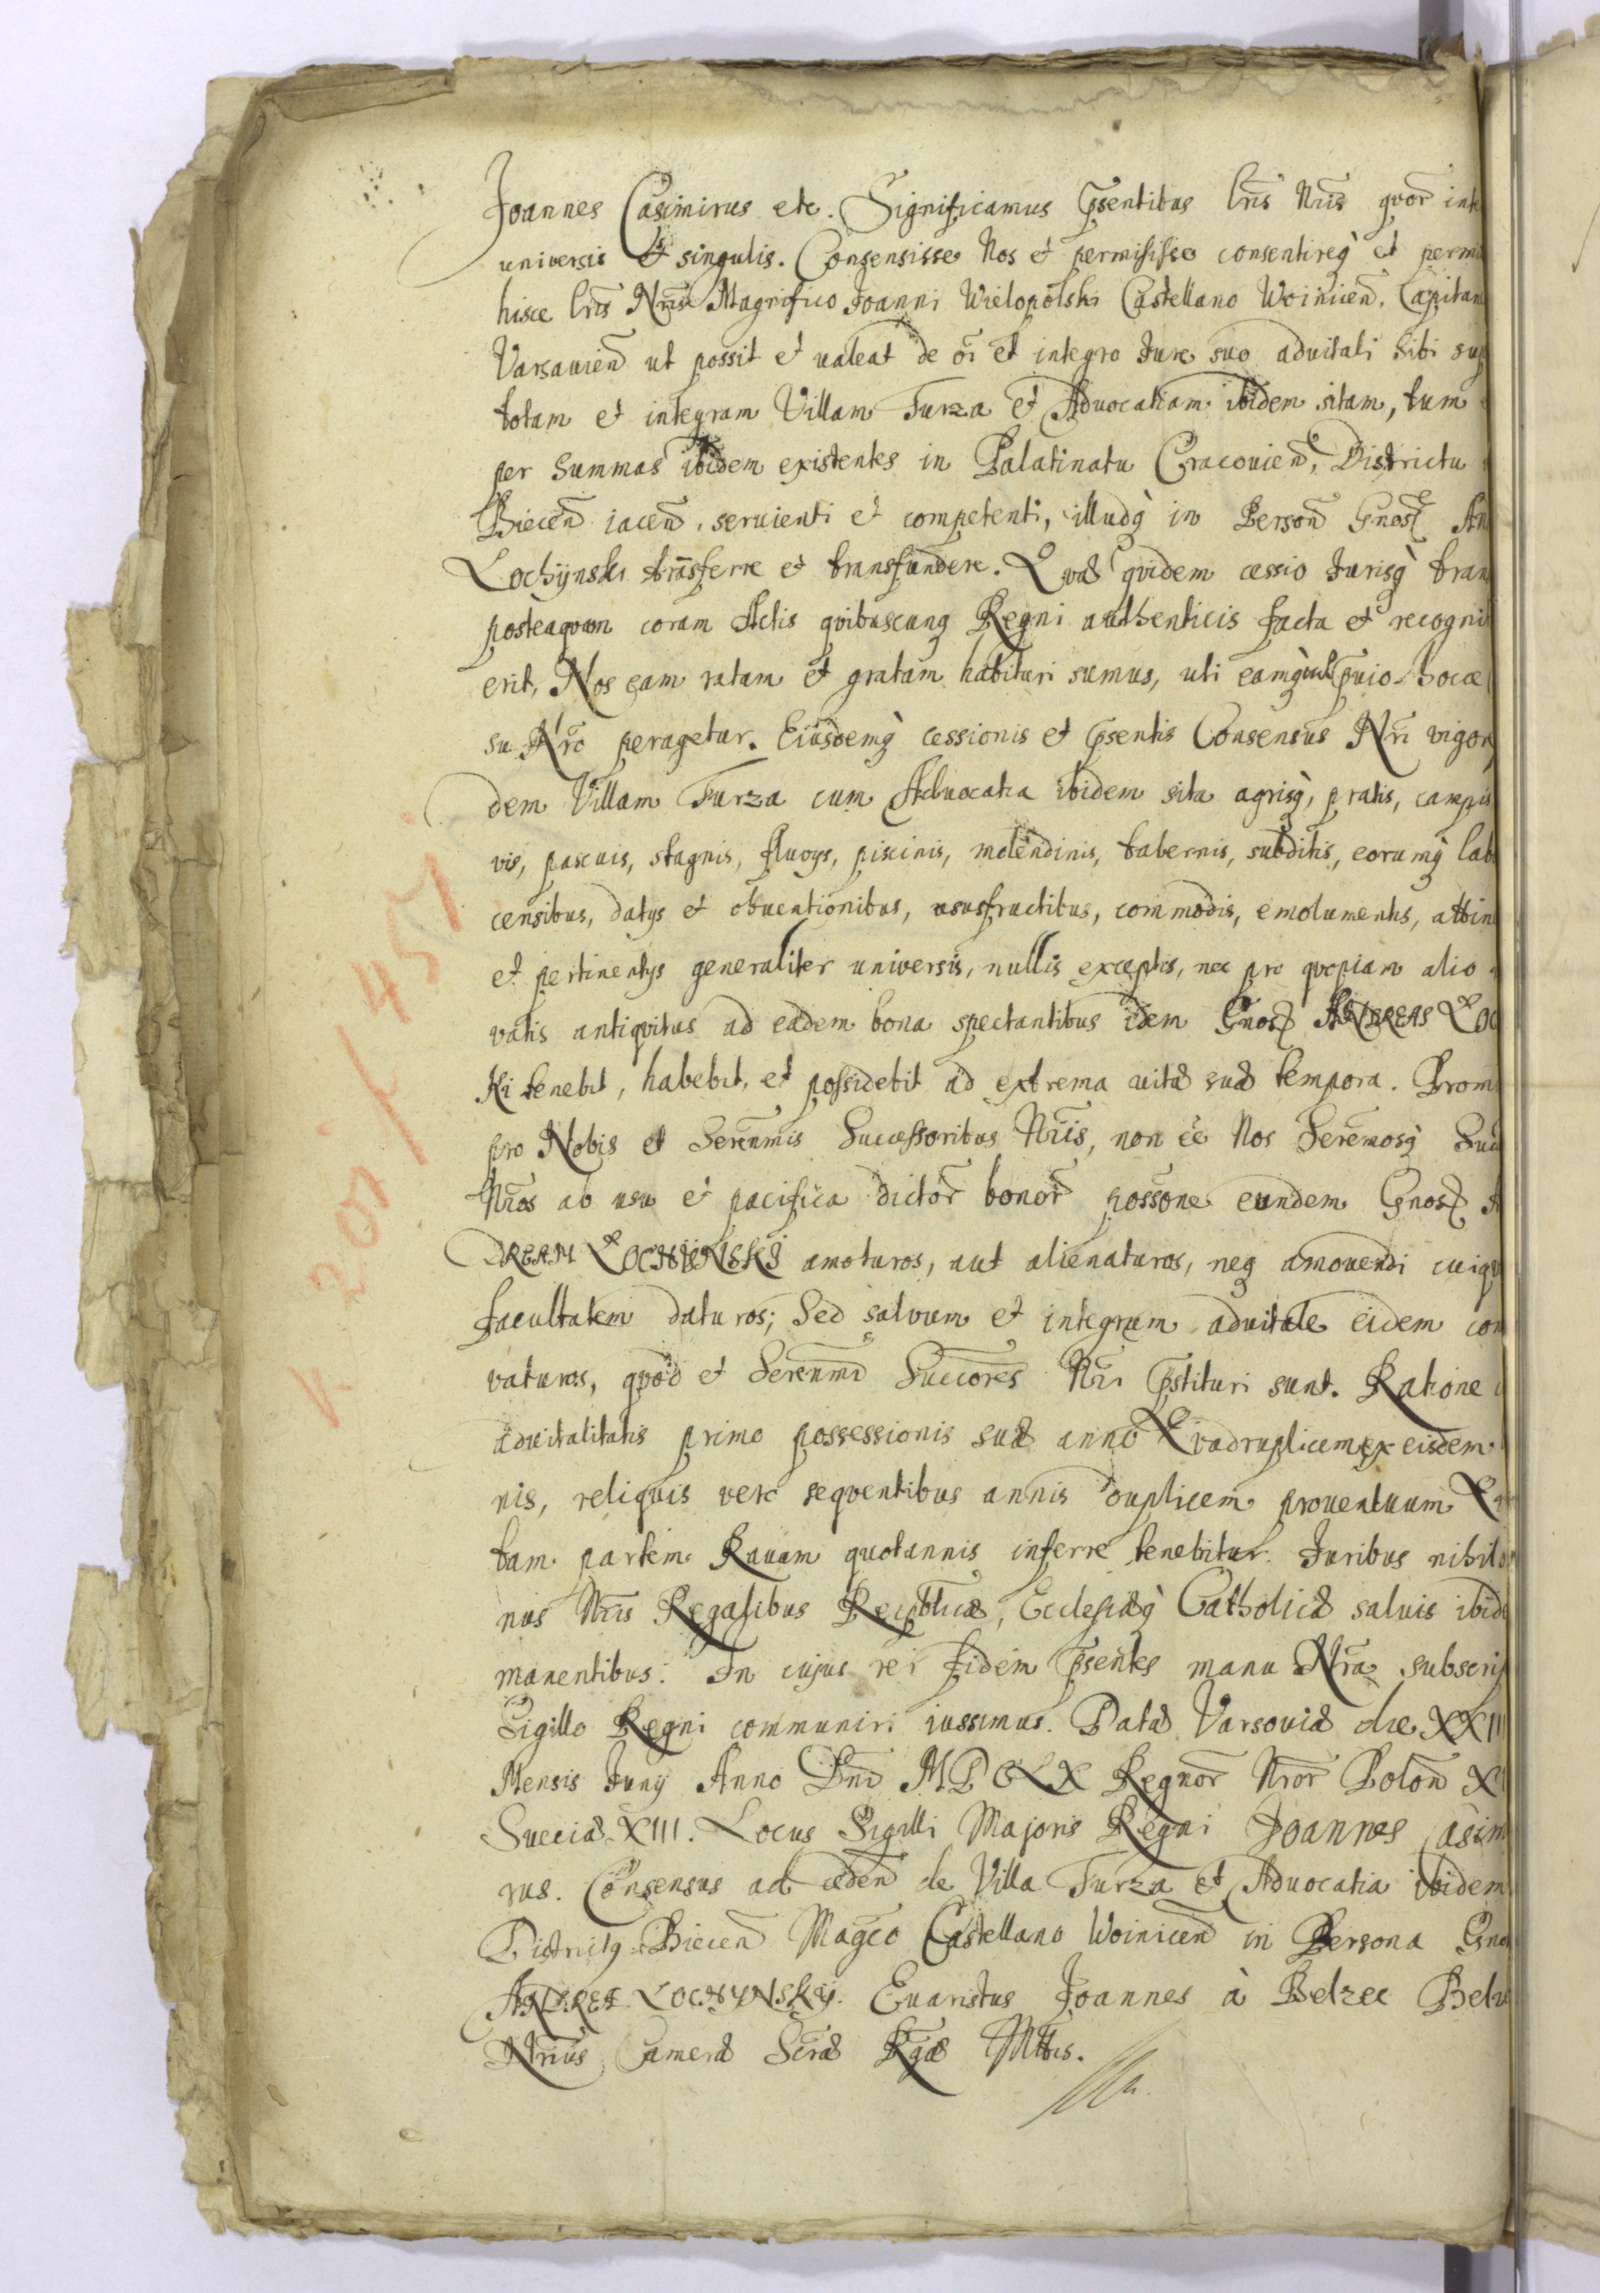 Joannes Casimirus etc. Significamus Psentibus Lris Nris qvor inte
universis et singulis. Consensisse Nos et permisisse consentireq et permi
hisce Lris Nris Magnifico Joanni Wielopolski Castellano Woinicen. Capitan
Varsavien ut possit et valeat de oi et integro Jure suo advitali sibi sup
totam et integram Villam Turza et Advocatiam ibidem sitam, tum
per Summas ibidem existentes in Palatinatu Cracovien, Districtu
Biecen iacen, servienti et competenti, illudq in Person Gnosi An
Lochynski transferre et transfundere. Qvæ qvidem cessio Jurisq tran
posteaqvam coram Actis qvibuscunq Regni authenticis facta et recognit
erit, Nos eam ratam et gratam habituri sumus, uti eamq pvio hocce
su Nro peragetur. Eiusdemq cessionis et Psentis Consensus Nri vigor
dem Villam Turza cum Advocatia ibidem sita agrisq, pratis, campis
vis, pascuis, stagnis, fluvys, piscinis, molendinis, tabernis, subditis, eorumq lab
censibus, datys et obventionibus, ususfructibus, commodis, emolumentis, attin
et pertinentys generaliter universis, nullis exceptis, nec pro qvopiam alio
vatis antiqvitus ad eadem bona spectantibus idem Gnos ANDREAS LOC
ki tenebit, habebit, et possidebit ad extrema vitæ suæ tempora. Prom
pro Nobis et Serenmis Successoribus Nris, non ee Nos Seremosq Suc
Nros ab usu et pacifica dictor bonor possone eundem Gnos A
DREAM LOCHYNSKI amoturos, aut alienaturos, neq amovendi cuiqv
facultatem daturos; Sed salvum et integrum advitale eidem con
vaturos, qvod et Serenmi Succores Nri Pstituri sunt. Ratione
advitalitatis primo possessionis suæ anno Qvadruplicem ex eisdem
nis, reliqvis vero seqventibus annis duplicem proventuum Qvar
tam partem Ravam quotannis inferre tenebitur. Juribus nihilo
nus Nris Regalibus Reipblicæ, Ecclesiæq Catholicæ salvis ibide
manentibus. In cujus rei fidem Psentes manu Nra subscrip
Sigillo Regni communiri iussimus. Datæ Varsoviæ die XXIII
Mensis Juny Anno Dni MDCLX Regnor Nror Polon X
Sueciæ XIII. Locus Sigilli Majoris Regni Joannes Casimi
rus. Consensus ad ceden de Villa Turza et Advocatia ibidem
Districtq Biecen Magco Castellano Woinicen in Persona Gno
ANDREÆ LOCHYNSKY. Evaristus Joannes à Belzec Belz
Nrius Cameræ Scræ Rgæ Mttis.